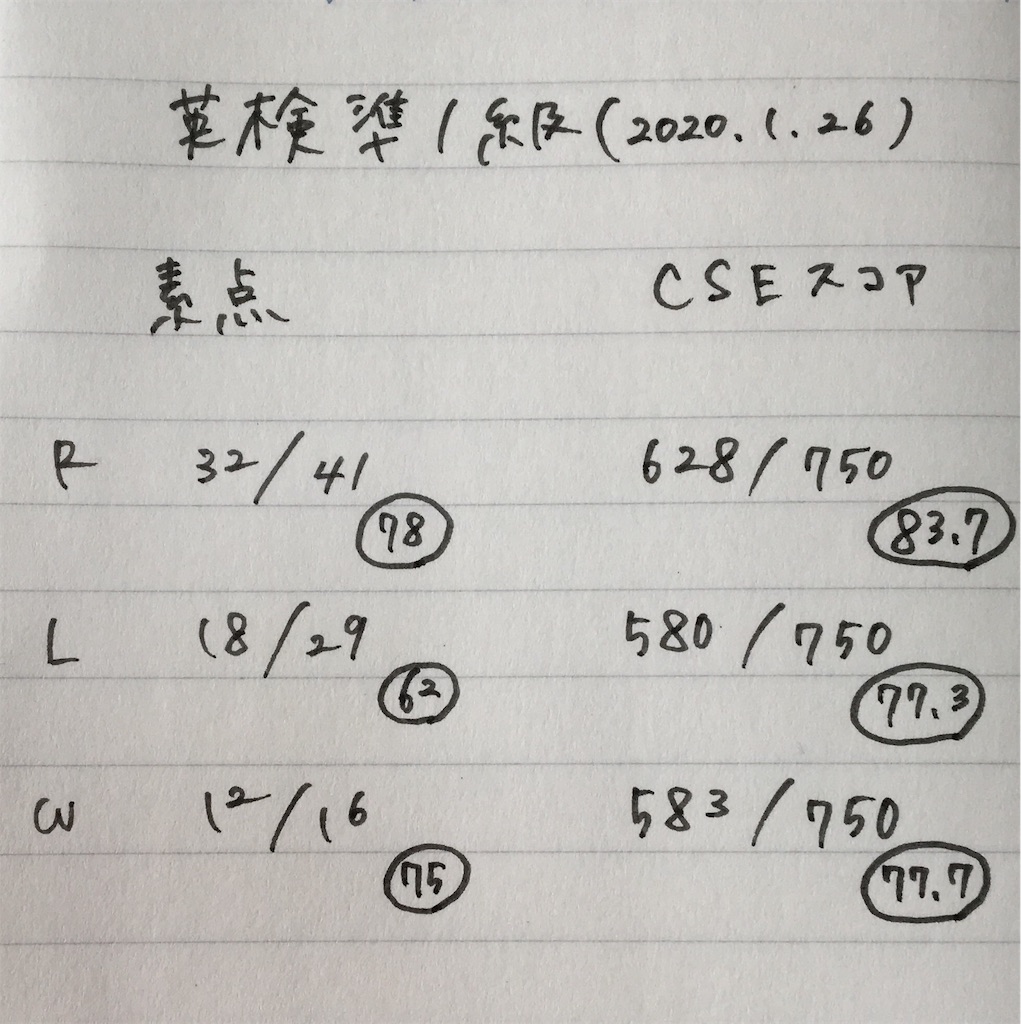 英検準1級(2020.1.26)
素点 CSEスコア
R 32/41 628/750
78 83.7
L 18/29 580/750
62 77.3
W 12/16 583/750
75 77.7